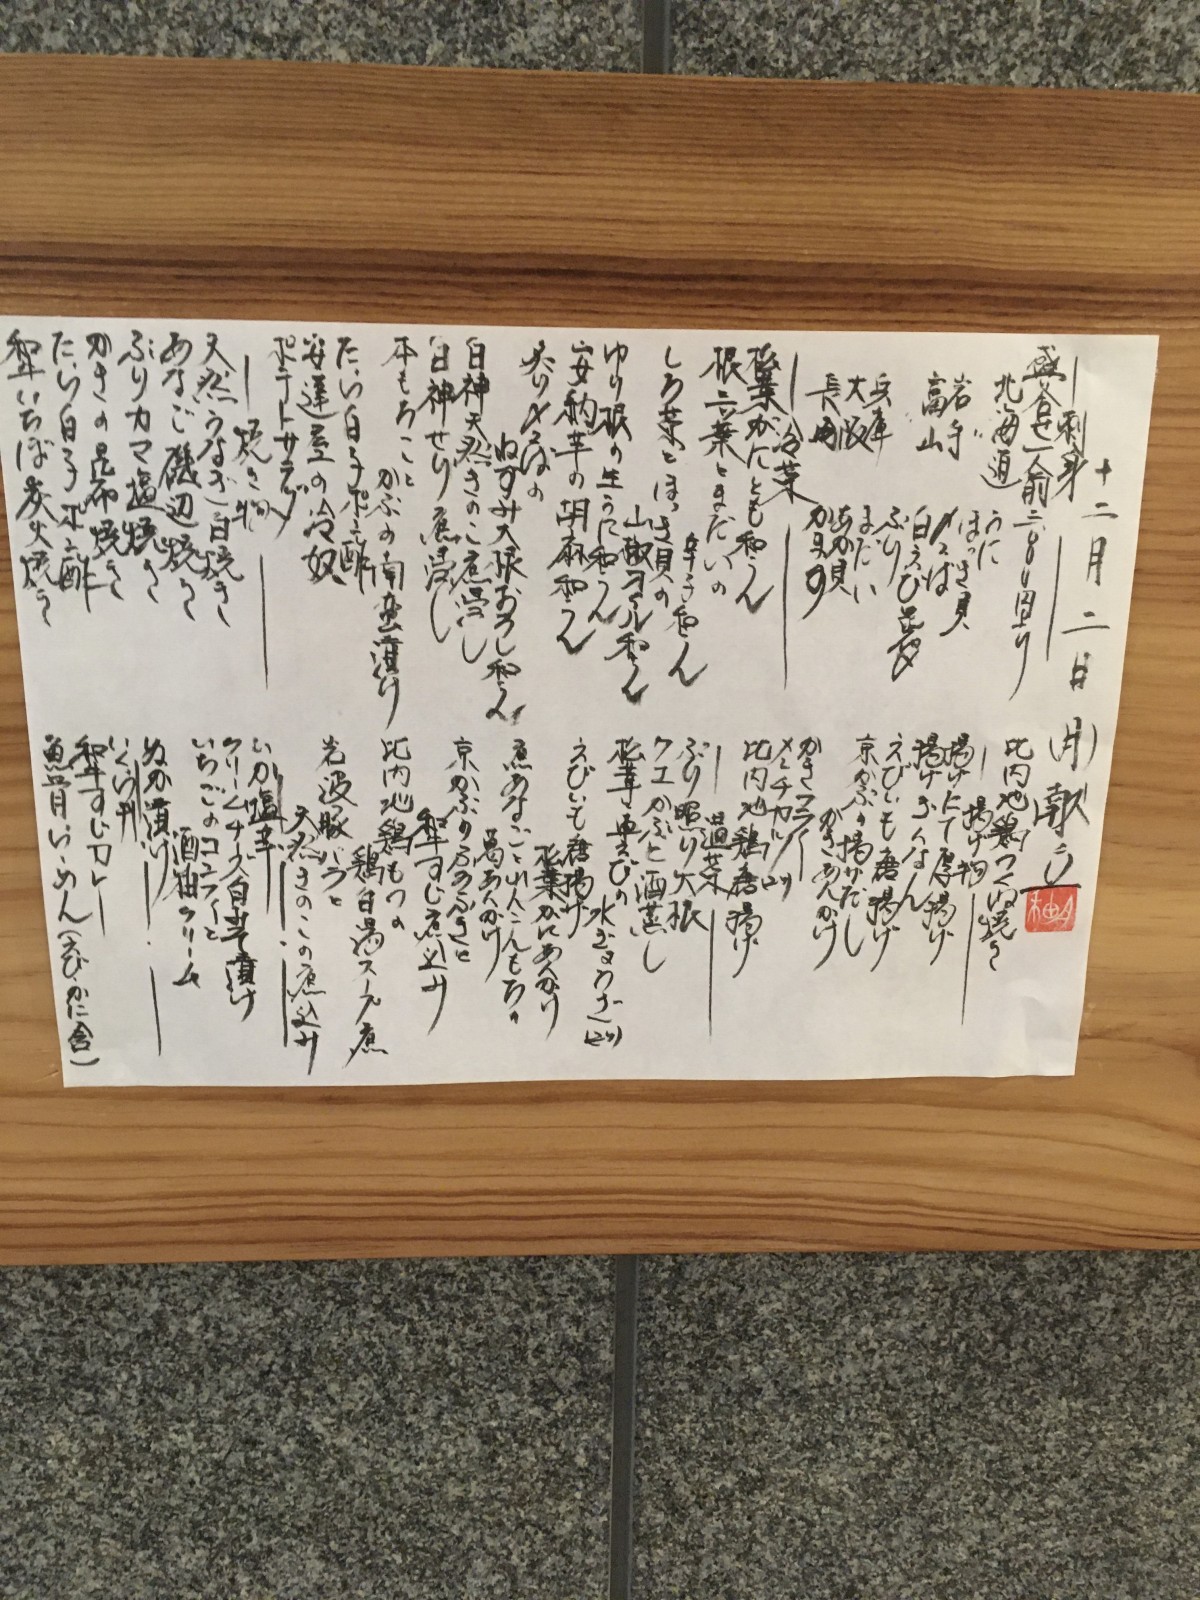 十二月二日(月)献立
刺身
盛合せ一人前二、八〇〇円より
北海道 うに
ほっき貝
岩手 〆さば
富山 白えび昆布〆
ぶり
兵庫 まだい
大阪 あか貝
長崎
冷菜
松葉かにとも和えん
根三つ葉とまだいの
辛子和えん
しろ菜とほっき貝の
山椒オイル和えん
ゆり根の生うに和えん
安納芋の胡麻和えん
炙り〆さばの
ねずみ大根おろし和えん
白神天然きのこ煮浸し
白神せり煮浸し
本もろこと
かぶの南蛮漬け
たい白子ポン酢
安達屋の冷奴
ポテトサラダ
焼き物
天然うなぎ白焼き
あなご磯辺焼き
ぶりカマ塩焼き
かきの昆布焼き
たい白子ポン酢
和牛いちぼ炭火焼き
比内地鶏つくね焼き
揚げ物
揚げたて厚揚げ
揚げぎんなん
えびいも唐揚げ
京かぶの揚げだし
かきあんかけ
かきフライ
メンチカツ
比内地鶏唐揚げ
温菜
ぶり照り大根
クエかぶと酒蒸し
松茸車えびの
えびいも唐揚げ
松葉かにあんかけ
煮あなごとれんこんもちの
葛あんかけ
京かぶのふろふきと
和牛すじ煮込み
比内地鶏もつの
鶏白湯スープ煮
岩波豚バラと
天然きのこの煮込み
いか塩辛
クリームチーズ白味噌漬け
いちごのコンフィと
酒粕クリーム
ぬか漬け
いくら丼
和牛すじカレー
魚介骨らーめん(えび・かに含)
柚